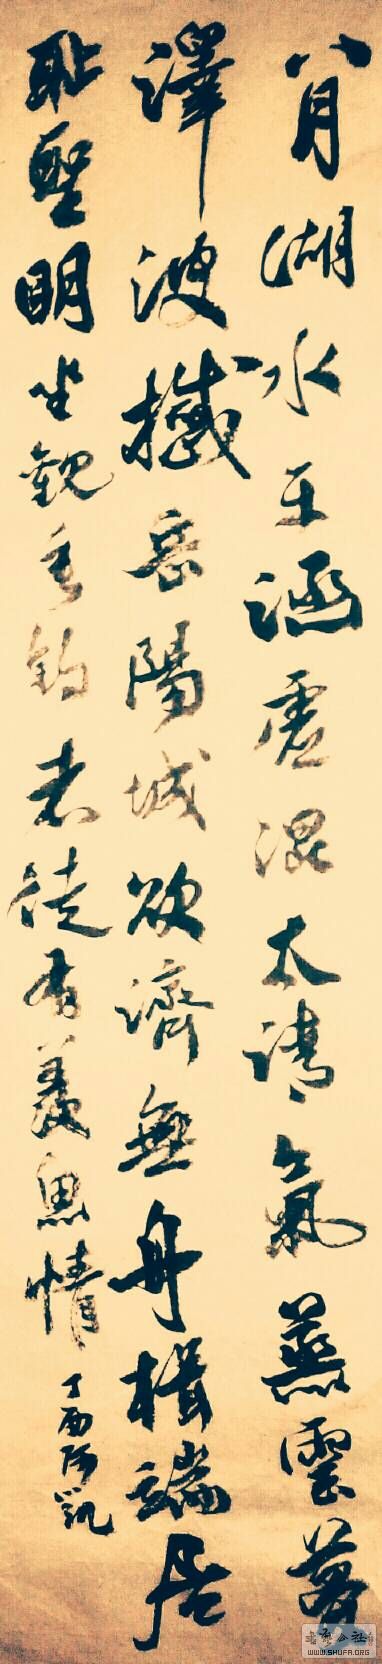 八月湖水平涵虛混太清氣蒸雲夢
澤波撼岳陽城欲濟無舟楫端居
耻聖明坐觀垂釣者徒有羡魚情
丁酉阿凱
WWW.SHUFA.ORG